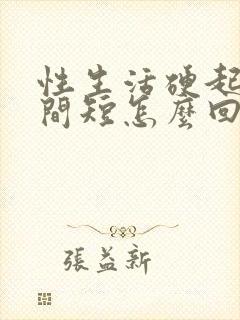 性生活硬起
間短怎麼回
張益新